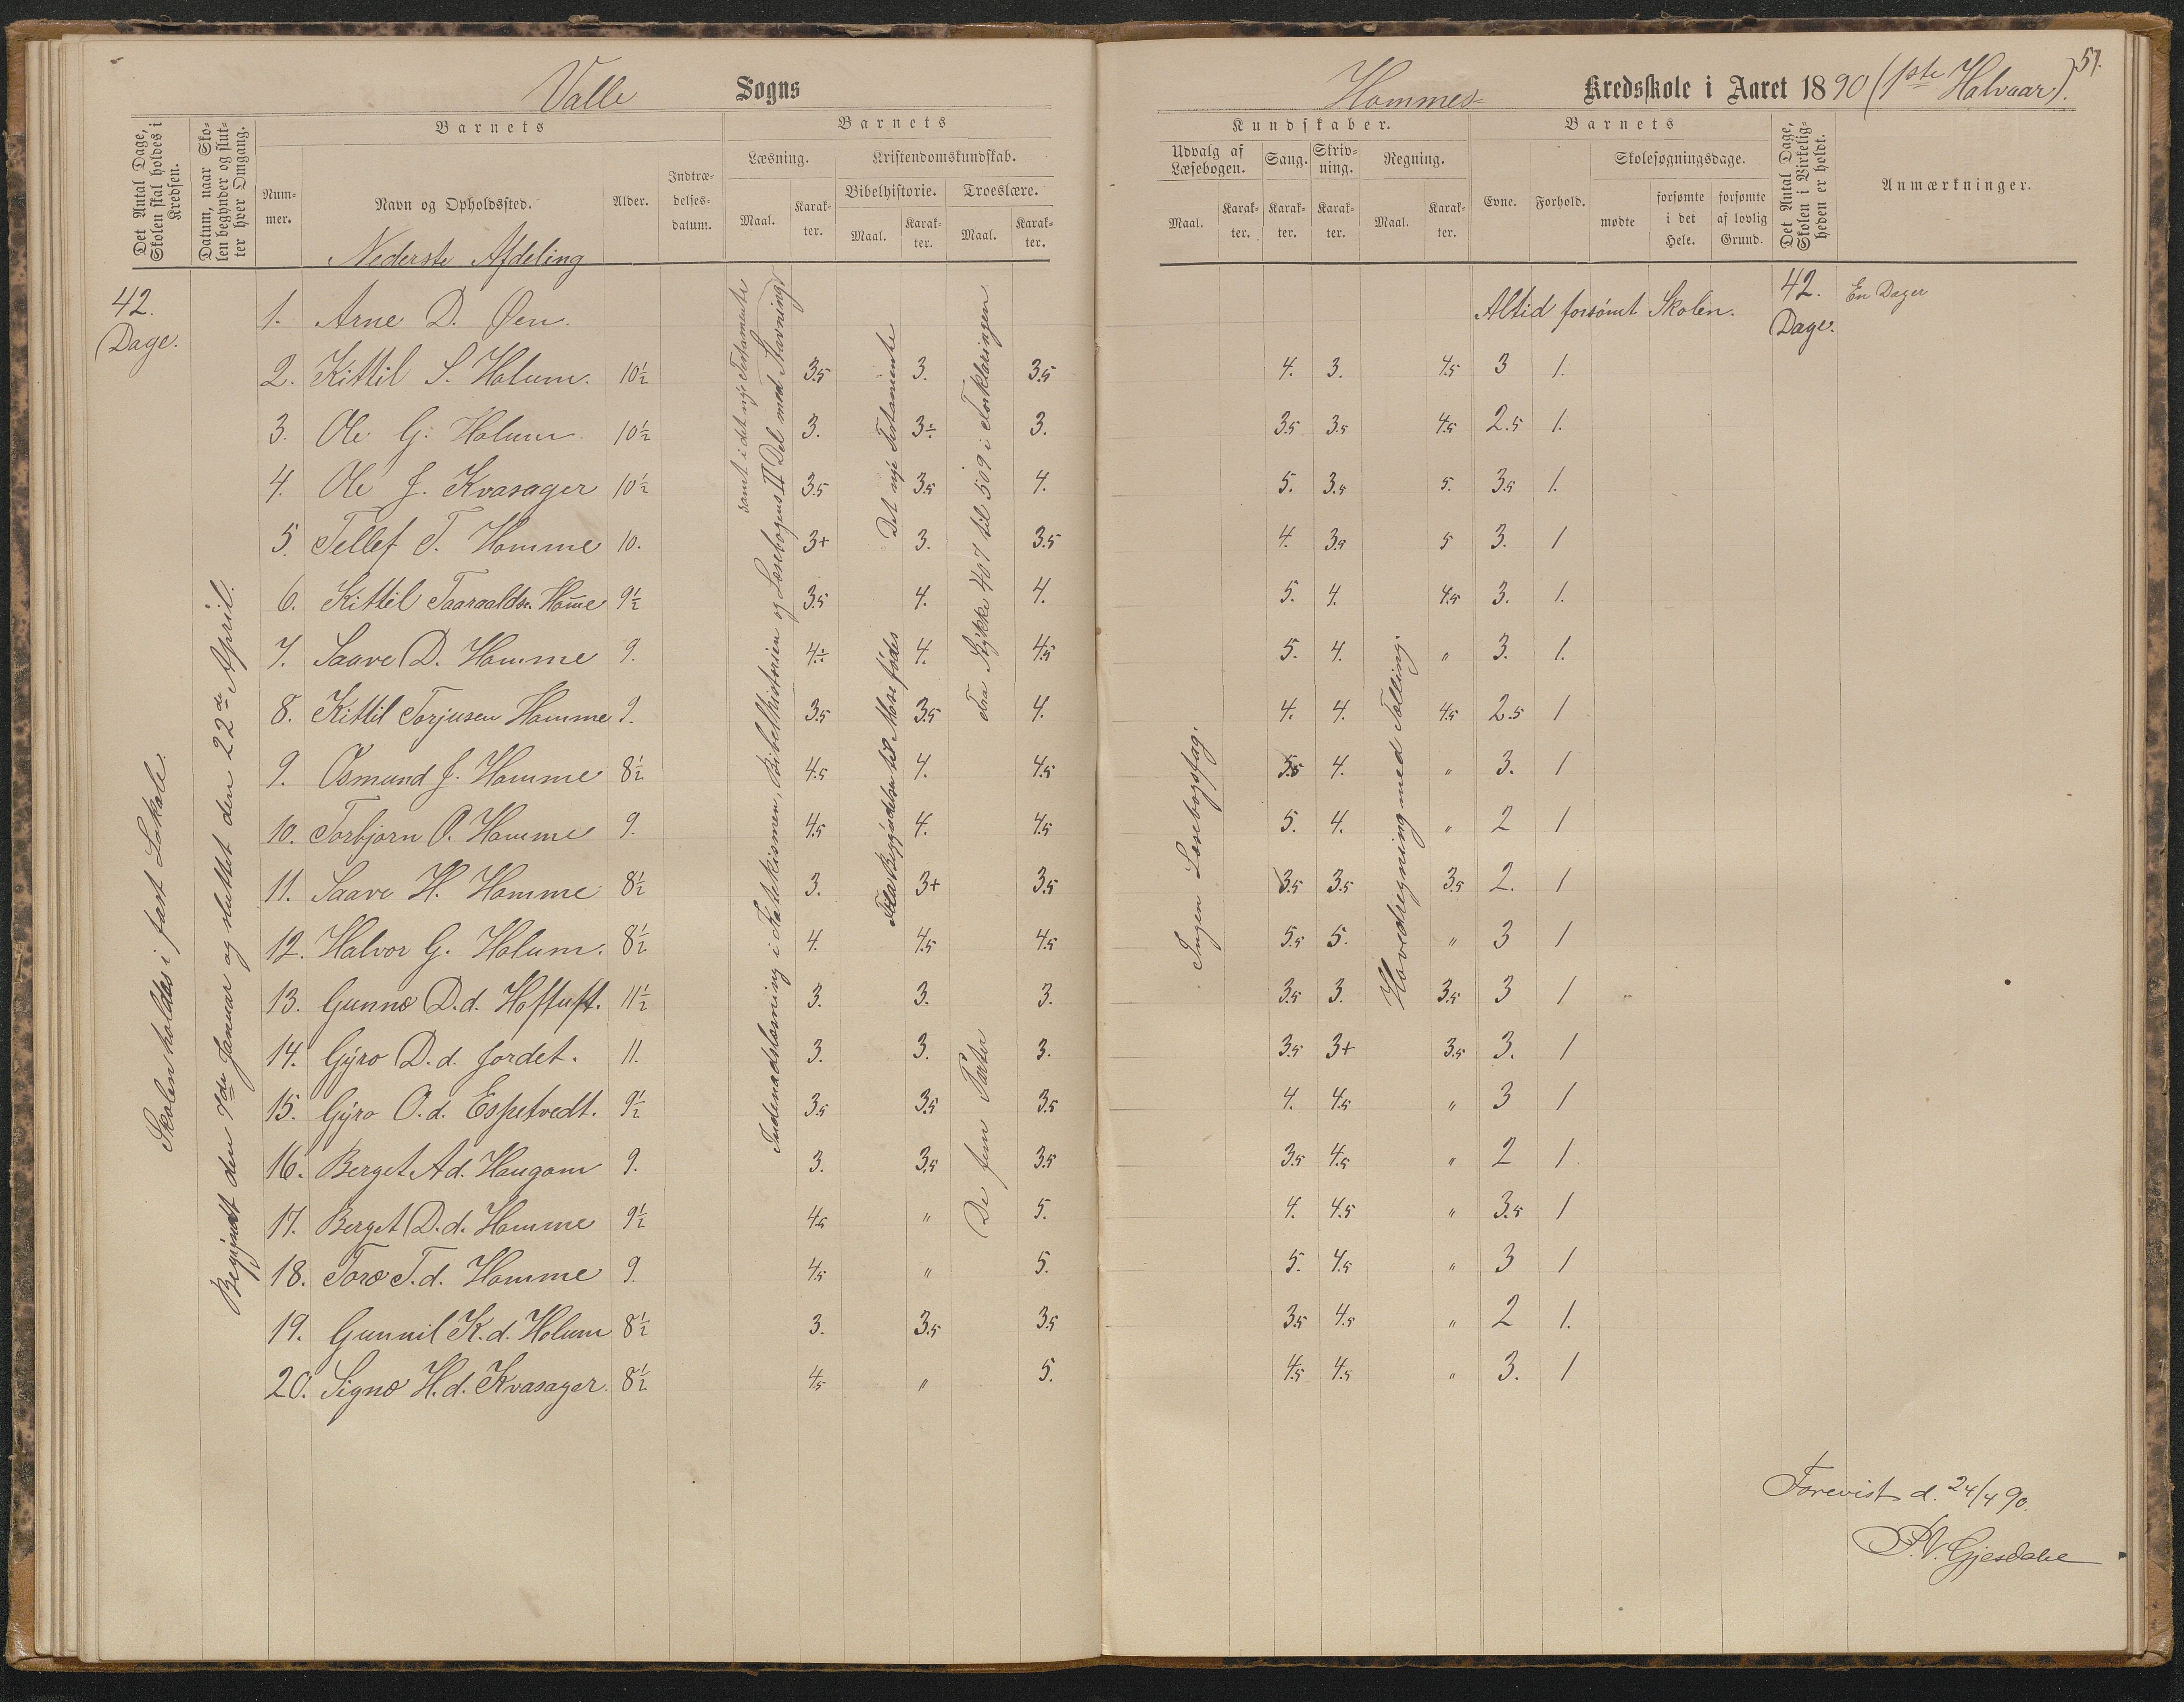 Valle Sogns
Det Antal Dage, Skolen skal holdes i Kredsen.
Datum, naar Skolen begynder og slutter hver Omgang.
Barnets
Nummer.
Navn og Opholdssted.
Alder.
Indtrædelsesdatum.
Barnets
Læsning.
Kristendomskundskab.
Bibelhistorie.
Troeslære.
Maal.
Karakter.
Maal.
Karakter.
Maal.
Karakter.
Nederste Afdeling
42. Dage.
Skolen holdes i fast Lokale.
Begyndt den 7de Januar og sluttet den 22de April.
Indenadslæsning i Katekismen, Bibelhistorien og Læsebogens II Del med Stavning,
samt i det nye Testamente
Det nye Testamente
Fra Begyndelsen til Mose fødes
Fra Stykke 407 til 509 i Forklaringen
De fem Parter
1. Arne D. Øen.
2. Kittil S. Holum. 10½ 3.5 3. 3.5
3. Ole G. Holum 10½ 3. 3÷ 3.
4. Ole J. Kvasager 10½ 3.5 3.5 4.
5. Tellef T. Homme 10. 3+ 3. 3.5
6. Kittil Taaraaldsn Hom̅e 9½ 3.5 4. 4.
7. Saave D. Homme 9. 4÷ 4. 4.5
8. Kittil Torjusen Homme 9. 3.5 3.5 4.
9. Osmund J. Homme 8½ 4.5 4. 4.5
10. Torbjørn O. Homme 9. 4.5 4. 4.5
11. Saave H. Homme 8½ 3. 3+ 3.5
12. Halvor G. Holum. 8½ 4. 4.5 4.5
13. Gunno D.d. Hoftuft. 11½ 3. 3. 3.
14. Gyro D.d. Jordet. 11. 3. 3. 3.
15. Gyro O.d. Espetvedt. 9½ 3.5 3.5 3.5
16. Berget A.d. Haugom 9. 3. 3.5 3.5
17. Berget D.d. Homme 9½ 4.5 " 5.
18. Toro T.d. Homme 9. 4.5 " 5.
19. Gunnil K.d. Holum 8½ 3. 3.5 3.5
20. Signo H.d. Kvasager 8½ 4.5 " 5.
51.
Hommes- Kredsskole i Aaret 1890 (1ste Halvaar).
Kundskaber.
Udvalg af Læsebogen.
Sang.
Skrivning.
Regning.
Maal.
Karakter.
Karakter.
Karakter.
Maal.
Karakter.
Barnets
Evne.
Forhold.
Skolesøgningsdage.
mødte
forsømte i det Hele.
forsømte af lovlig Grund.
Det Antal Dage, Skolen i Virkeligheden er holdt.
Anmærkninger.
Ingen Læsebogsfag.
Hovedregning med Tælling.
Altid forsømt Skolen. 42. Dage. En Dager
4. 3. 4.5 3 1.
3.5 3.5 4.5 2.5 1.
5. 3.5 5. 3.5 1.
4. 3.5 5 3. 1
5. 4. 4.5 3. 1.
5. 4. " 3. 1.
4. 4. 4.5 2.5 1
5.5 4. " 3. 1
5. 4. " 2 1
3.5 3.5 3.5 2. 1
5.5 5. " 3 1
3.5 3. 3.5 3 1
3.5 3+ 3.5 3. 1
4. 4.5 " 3 1
3.5 4.5 " 2 1.
4. 4.5 " 3.5 1
5. 4.5 " 3 1
3.5 4.5 " 2 1.
4.5 4.5 " 3. 1
Forevist d. 24/4 90.
P.V. Gjesdahl